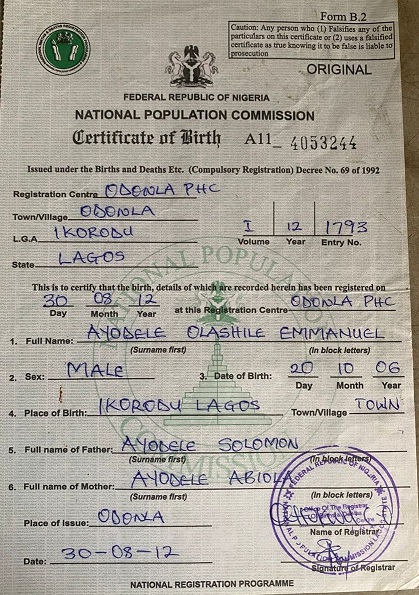 Form B.2
Caution: Any person who (1) Falsifies any of the
particulars on this certificate or (2) uses a falsified
certificate as true knowing it to be false is liable to
prosecution
ORIGINAL
FEDERAL REPUBLIC OF NIGERIA
NATIONAL POPULATION COMMISSION
Certificate of Birth A11_ 4053244
Issued under the Births and Deaths Etc. (Compulsory Registration) Decree No. 69 of 1992
Registration Centre ODONLA PHC
Town/Village ODONLA
L.G.A IKORODU
I 12 1793
Volume Year Entry No.
State LAGOS
This is to certify that the birth, details of which are recorded herein has been registered on
30 08 12 at this Registration Centre ODONLA PHC
Day Month Year
1. Full Name: AYODELE OLASHILE EMMANUEL
(Surname first) (In block letters)
2. Sex: MALE 3. Date of Birth: 20 10 06
Day Month Year
4. Place of Birth: IKORODU LAGOS Town/Village TOWN
5. Full name of Father: AYODELE SOLOMON
(Surname first) (In block letters)
6. Full name of Mother: AYODELE ABIOLA
(Surname first) (In block letters)
Place of Issue: ODONLA
Name of Registrar
Date: 30-08-12
Signature of Registrar
NATIONAL REGISTRATION PROGRAMME